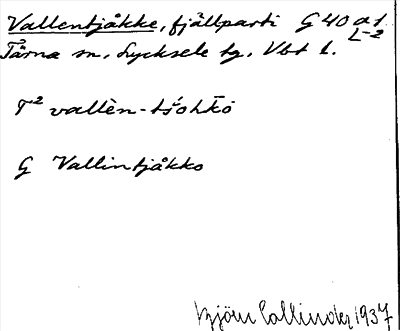 Vallentjåkke, fjällparti G 40 a 1
L-2
Tärna sn, Lycksele lg, Vbt l.
T² vallèn-tśohkō
G Vallintjåkko
Björn Collinder 1937